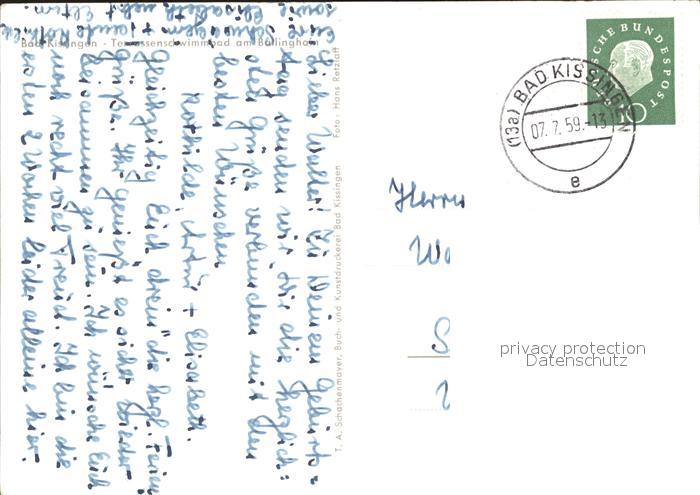 Bad Kissingen - Terrassenschwimmbad am Ballinghain
Foto: Hans Retzlaff
T. A. Schachenmayer, Buch- und Kunstdruckerei Bad Kissingen
Lieber Walter! Zu Deinem Geburts=
tag senden wir, wir die herzlich=
sten Grüße verbunden mit den
besten Wünschen
Rothilde, Artur + Elisabeth.
Gleichzeitig Euch drein die herzl. Ferien
Grüße. Ihr genießt es sicher wieder
beisammen zu sein. Ich wünsche Euch
noch recht viel Freude. Ich bin die
ersten 2 Wochen leider alleine hier.
Eure Schwägerin + Tante
sowie Elisabeth nebst Eltern
SCHE BUNDESPOST
10
(13a) BAD KISSINGEN
07. 7. 59.-13
e
Herrn
Wa
S
privacy protection
Datenschutz